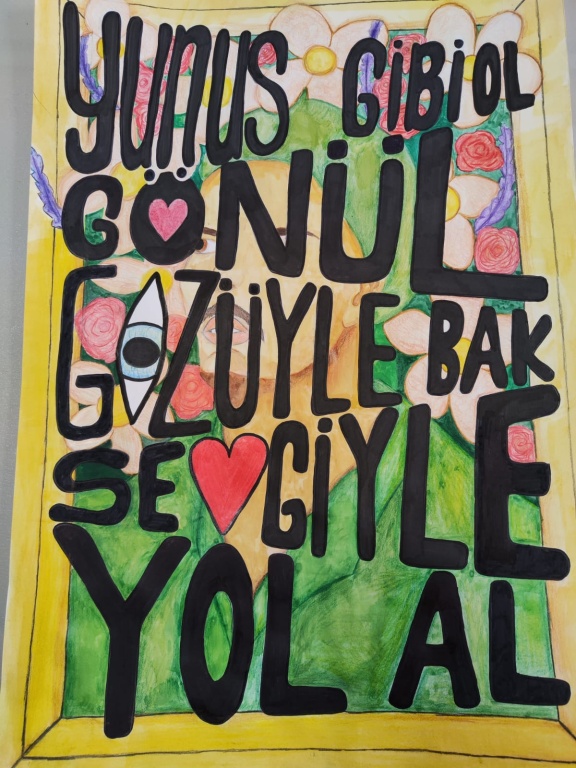 YUNUS GiBi OL
GÖNÜL
GÖZÜYLE BAK
SEVGiYLE
YOL AL